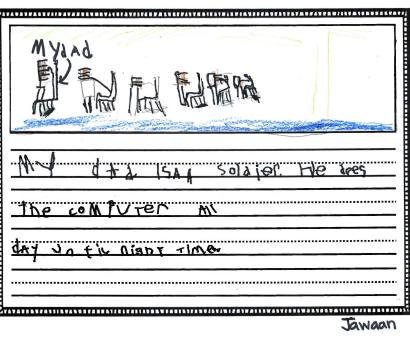 My dad
My dad is a soldajer. He does
the comPuTer All
dAY un til nigbt time.
Jawaan